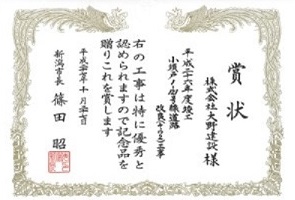 賞状
株式会社大野建設様
平成二十六年度竣工
小須戸
線道路
改良
工事
右の工事は特に優秀と
認められますので記念品を
贈りこれを賞します
平成
年十月
七日
新潟市長
篠田 昭